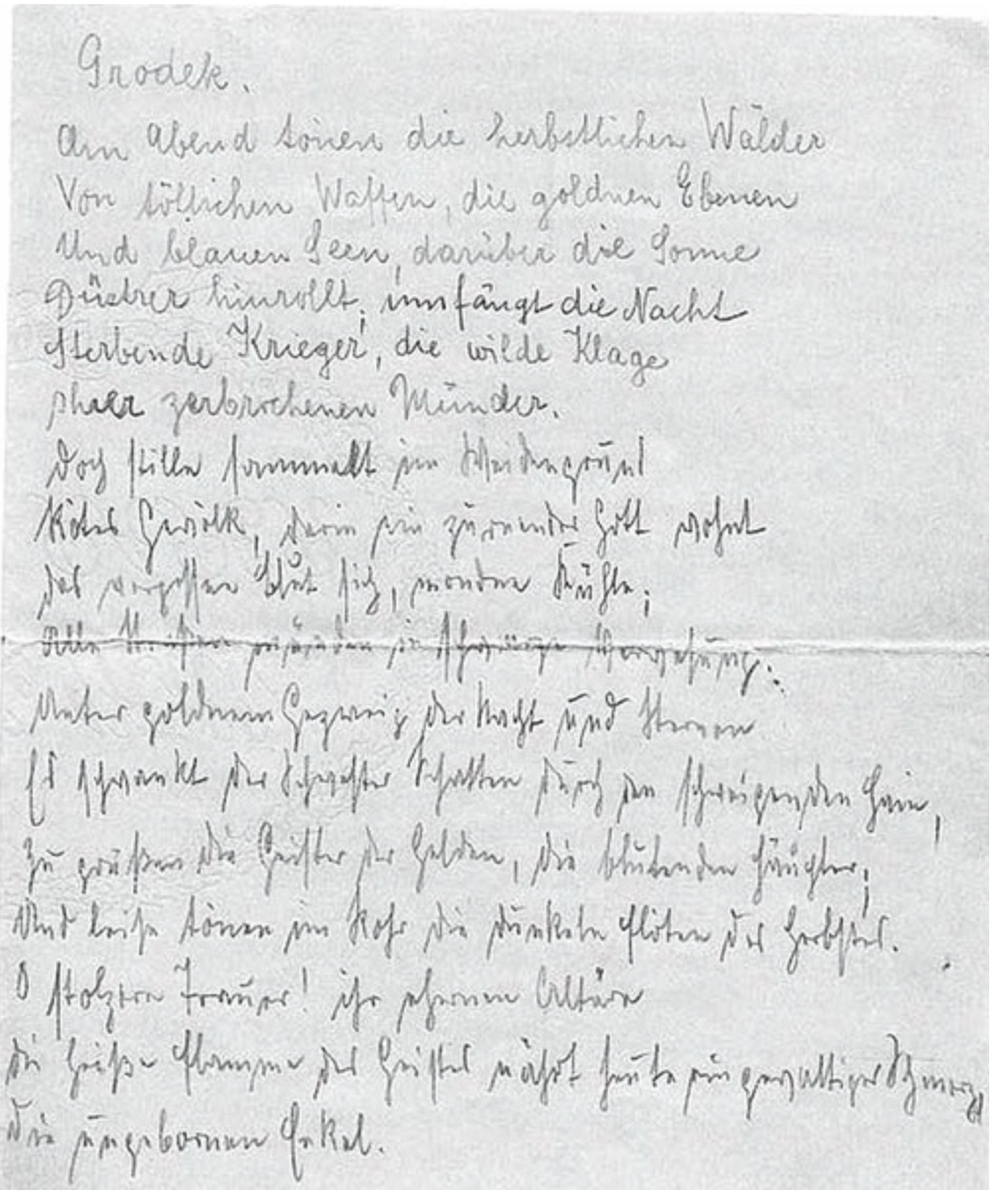 Grodek.
Am Abend tönen die herbstlichen Wälder
Von tötlichen Waffen, die goldnen Ebenen
Und blauen Seen, darüber die Sonne
Düstrer hinrollt; umfängt die Nacht
Sterbende Krieger, die wilde Klage
Ihrer zerbrochenen Münder.
Doch stille sammelt im Weidengrund
Rotes Gewölk, darin ein zürnender Gott wohnt
Das vergossne Blut sich, mondne Kühle;
Alle Straßen münden in schwarze Verwesung.
Unter goldnem Gezweig der Nacht und Sternen
Es schwankt der Schwester Schatten durch den schweigenden Hain,
Zu grüßen die Geister der Helden, die blutenden Häupter;
Und leise tönen im Rohr die dunkeln Flöten des Herbstes.
O stolzere Trauer! ihr ehernen Altäre
Die heiße Flamme des Geistes nährt heute ein gewaltiger Schmerz,
Die ungebornen Enkel.